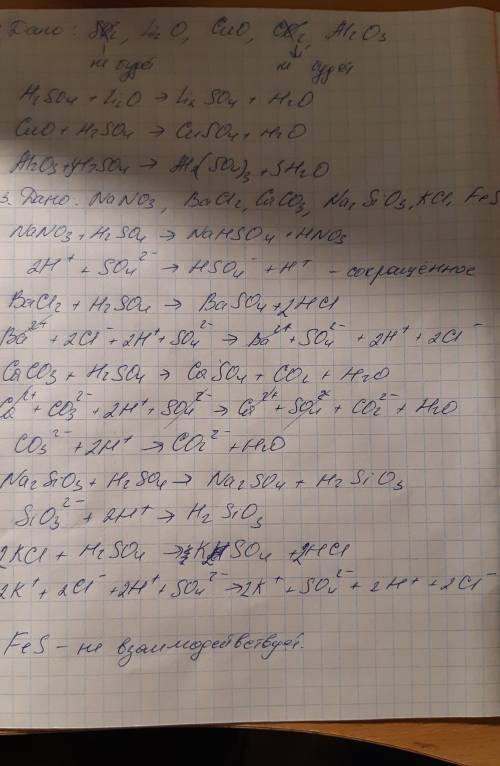 Дано: SO₂, Li₂O, CuO, CO₂, Al₂O₃
не будет не будет
H₂SO₄ + Li₂O → Li₂SO₄ + H₂O
CuO + H₂SO₄ → CuSO₄ + H₂O
Al₂O₃ + 3H₂SO₄ → Al₂(SO₄)₃ + 3H₂O
3. Дано: NaNO₃, BaCl₂, CaCO₃, Na₂SiO₃, KCl, FeS
NaNO₃ + H₂SO₄ → NaHSO₄ + HNO₃
2H⁺ + SO₄²⁻ → HSO₄⁻ + H⁺ - сокращённое
BaCl₂ + H₂SO₄ → BaSO₄ + 2HCl
Ba²⁺ + 2Cl⁻ + 2H⁺ + SO₄²⁻ → Ba²⁺ + SO₄²⁻ + 2H⁺ + 2Cl⁻
CaCO₃ + H₂SO₄ → CaSO₄ + CO₂ + H₂O
Ca²⁺ + CO₃²⁻ + 2H⁺ + SO₄²⁻ → Ca²⁺ + SO₄²⁻ + CO₂²⁻ + H₂O
CO₃²⁻ + 2H⁺ → CO₂²⁻ + H₂O
Na₂SiO₃ + H₂SO₄ → Na₂SO₄ + H₂SiO₃
SiO₃²⁻ + 2H⁺ → H₂SiO₃
2KCl + H₂SO₄ → K₂SO₄ + 2HCl
2K⁺ + 2Cl⁻ + 2H⁺ + SO₄²⁻ → 2K⁺ + SO₄²⁻ + 2H⁺ + 2Cl⁻
FeS - не взаимодействует.